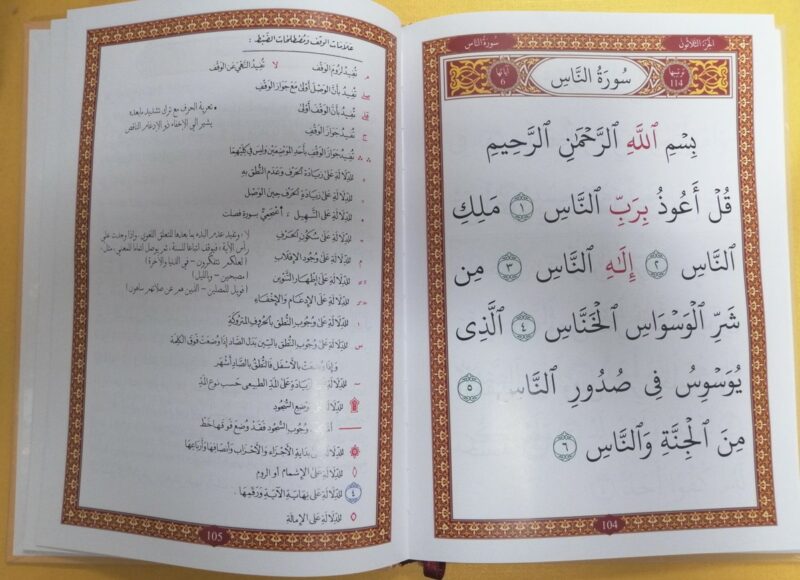 الجزء الثلاثون
سورة الناس
ترتيبها
114
سُورَةُ النَّاسِ
آياتها
6
بِسْمِ ٱللَّهِ ٱلرَّحْمَٰنِ ٱلرَّحِيمِ
قُلْ أَعُوذُ بِرَبِّ ٱلنَّاسِ ١ مَلِكِ
ٱلنَّاسِ ٢ إِلَٰهِ ٱلنَّاسِ ٣ مِن
شَرِّ ٱلْوَسْوَاسِ ٱلْخَنَّاسِ ٤ ٱلَّذِى
يُوَسْوِسُ فِى صُدُورِ ٱلنَّاسِ ٥
مِنَ ٱلْجِنَّةِ وَٱلنَّاسِ ٦
104
علامات الوقف ومصطلحات الضبط :
م تفيد لزوم الوقف لا تفيد النهي عن الوقف
صلى تفيد بأن الوصل أولى مع جواز الوقف
قلى تفيد بأن الوقف أولى
ج تفيد جواز الوقف
تفيد جواز الوقف بأحد الموضعين وليس في كليهما
للدلالة على زيادة الحرف وعدم النطق به
للدلالة على زيادة الحرف حين الوصل
للدلالة على التسهيل : ءاعجمي بسورة فصلت
للدلالة على سكون الحرف
م للدلالة على وجود الإقلاب
للدلالة على إظهار التنوين
للدلالة على الإدغام والإخفاء
للدلالة على وجوب النطق بالحروف المتروكة
س للدلالة على وجوب النطق بالسين بدل الصاد إذا وضعت فوق الكلمة
وإذا وضعت بالأسفل فالنطق بالصاد أشهر
للدلالة على زيادة على المد الطبيعي حسب نوع المد
للدلالة على موضع السجود
وجوب السجود فقد وضع فوقها خط
للدلالة على بداية الأجزاء والأحزاب وأنصافها وأرباعها
للدلالة على الإشمام أو الروم
٤ للدلالة على نهاية الآية ورقمها .
للدلالة على الإمالة
• تعرية الحرف مع ترك تشديد مابعده
يشير الى الإخفاء أو الإدغام الناقص
لا : وتفيد عدم البدء بما بعدها للتعلق اللغوي، وإذا وجدت على
رأس الآية : فيوقف اتباعا للسنة، ثم يوصل اتباعا للمعنى، مثل:
(لعلكم تتفكرون – في الدنيا والآخرة)
(مصبحين – والليل)
(فويل للمصلين – الذين هم عن صلاتهم ساهون)
105